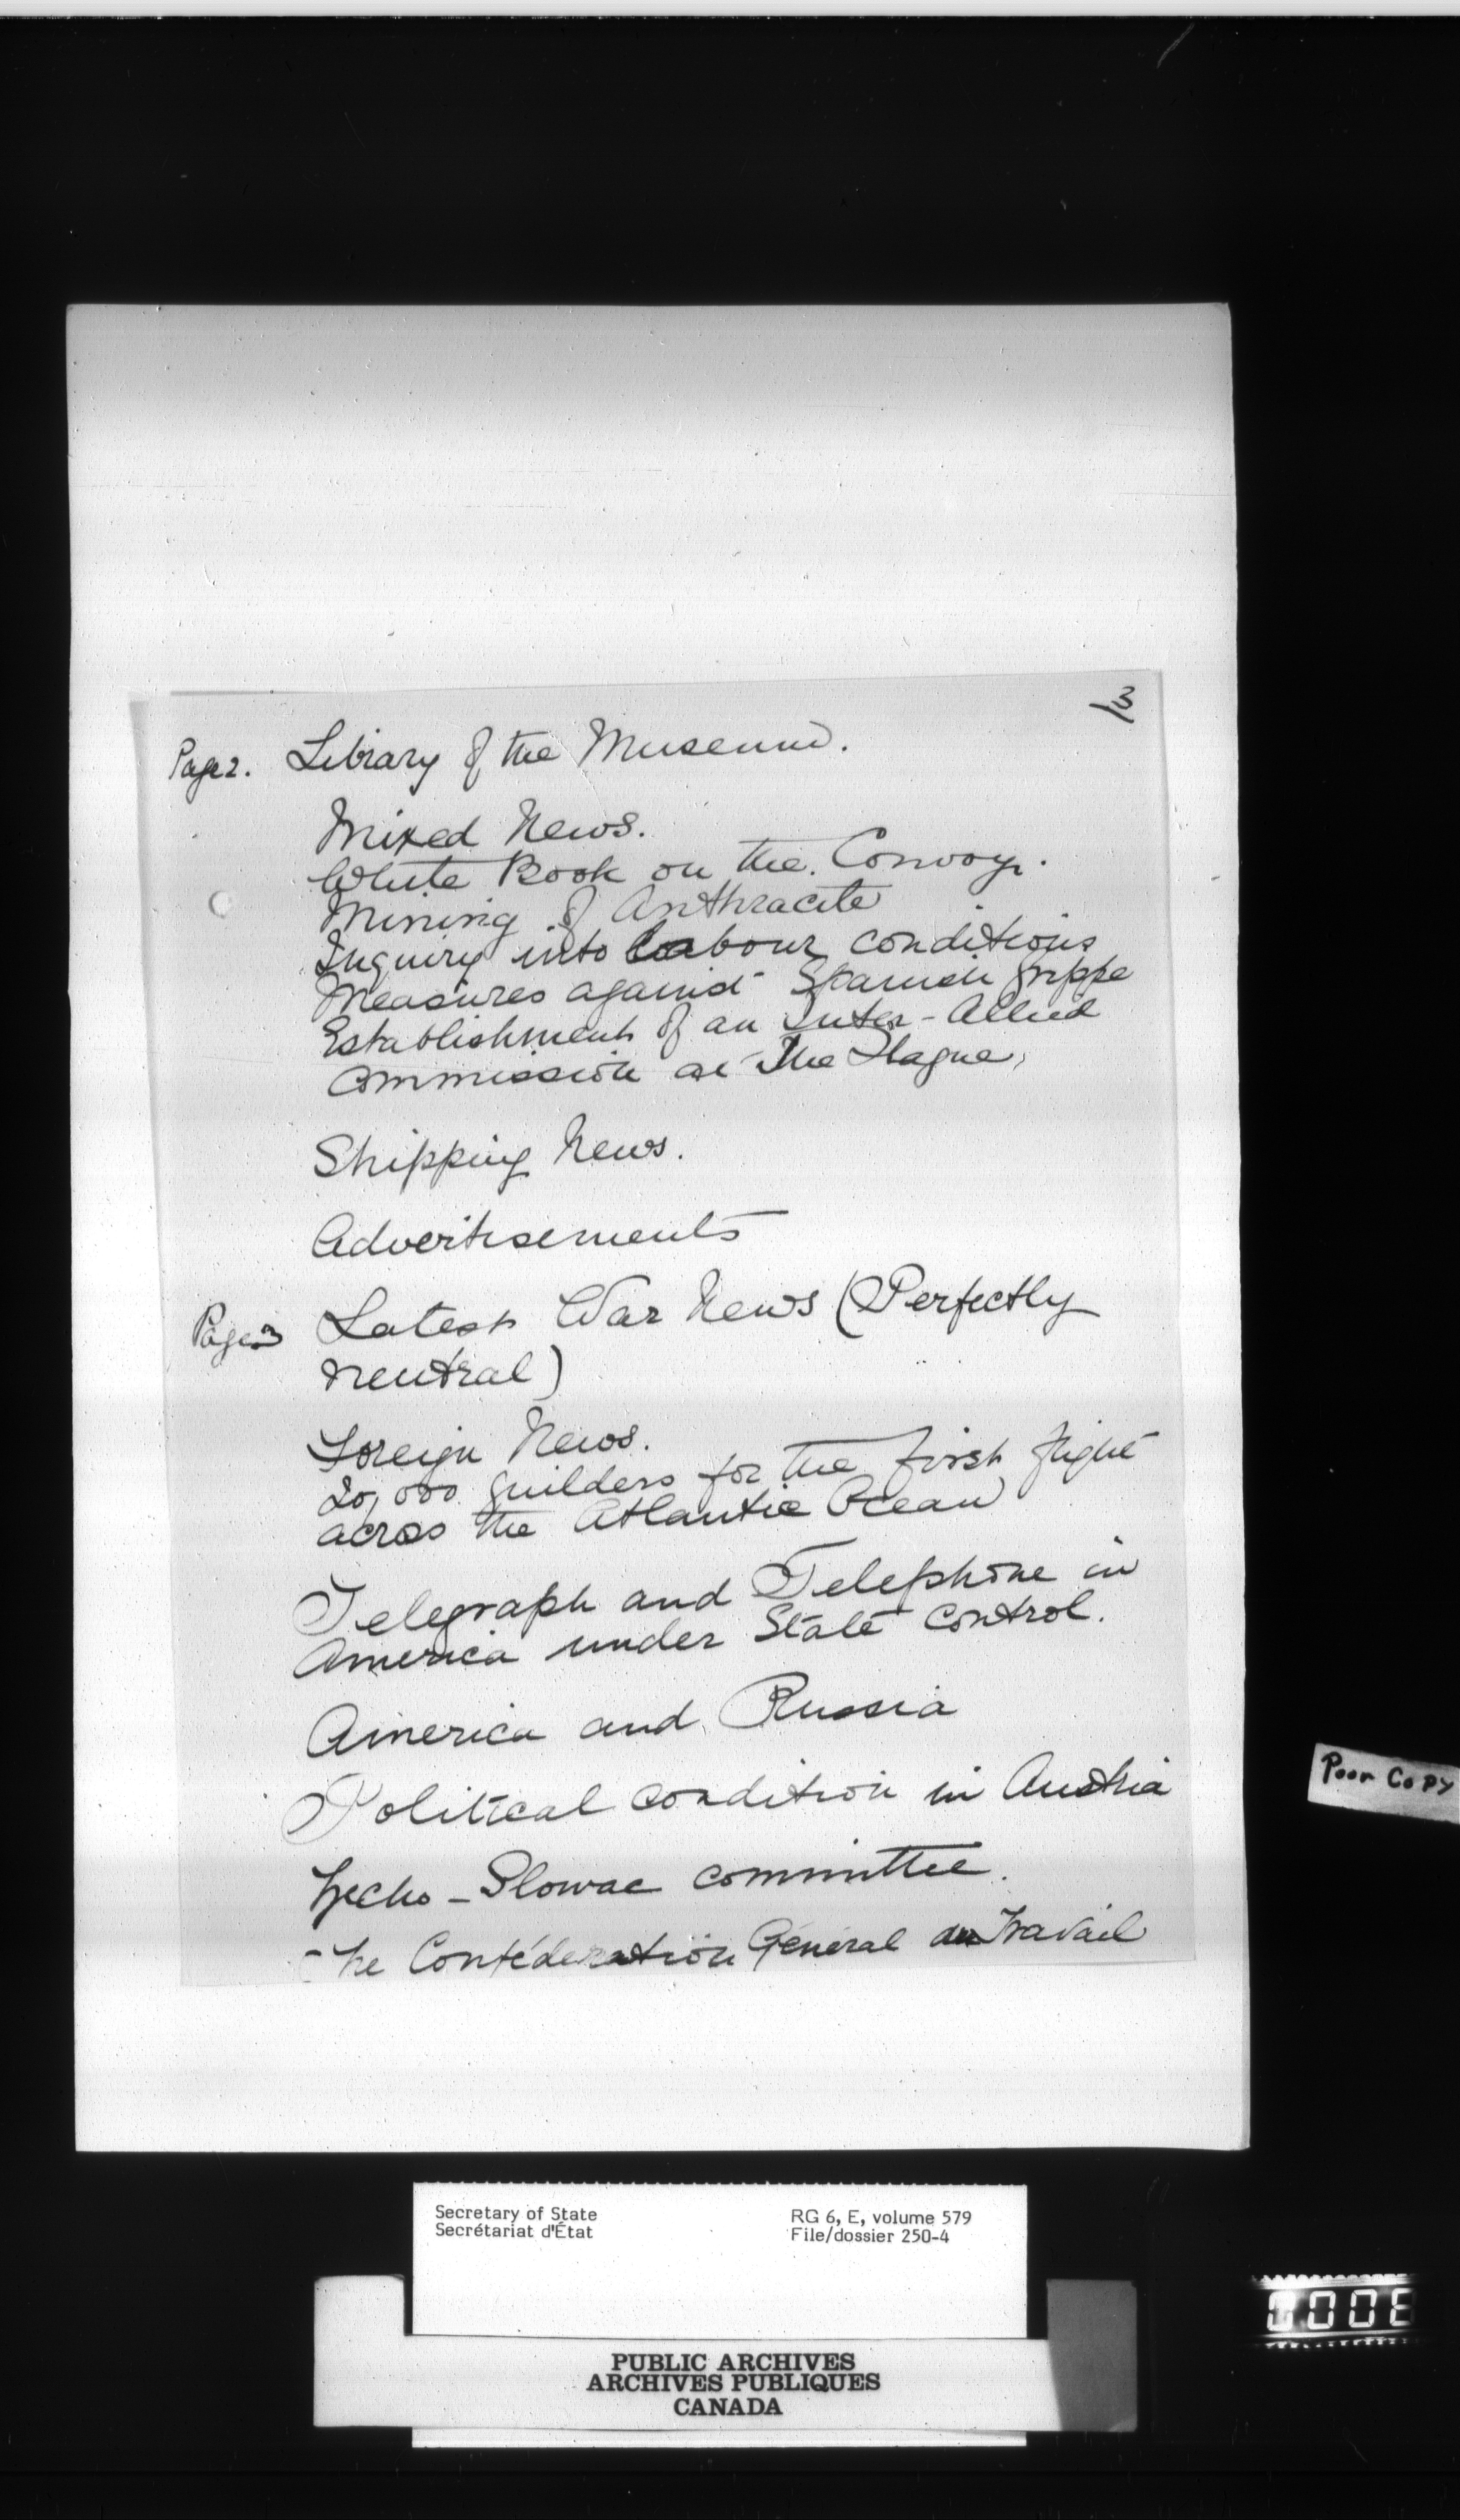 3
Page 2. Library of the Museum.
Mixed News.
White Book on the Convoy.
Mining of Anthracite
Inquiry into labour conditions
Measures against Spanish Grippe
Establishment of an Inter-Allied
Commission at The Hague,
Shipping News.
Advertisements
Page 3 Latest War News (Perfectly
neutral)
Foreign News.
20,000 guilders for the first flight
across the Atlantic Ocean
Telegraph and Telephone in
America under State control.
America and Russia
Political condition in Austria
-Slowac committee.
The Confédération Général du Travail
Poor Copy
Secretary of State
Secrétariat d'État
RG 6, E, volume 579
File/dossier 250-4
PUBLIC ARCHIVES
ARCHIVES PUBLIQUES
CANADA